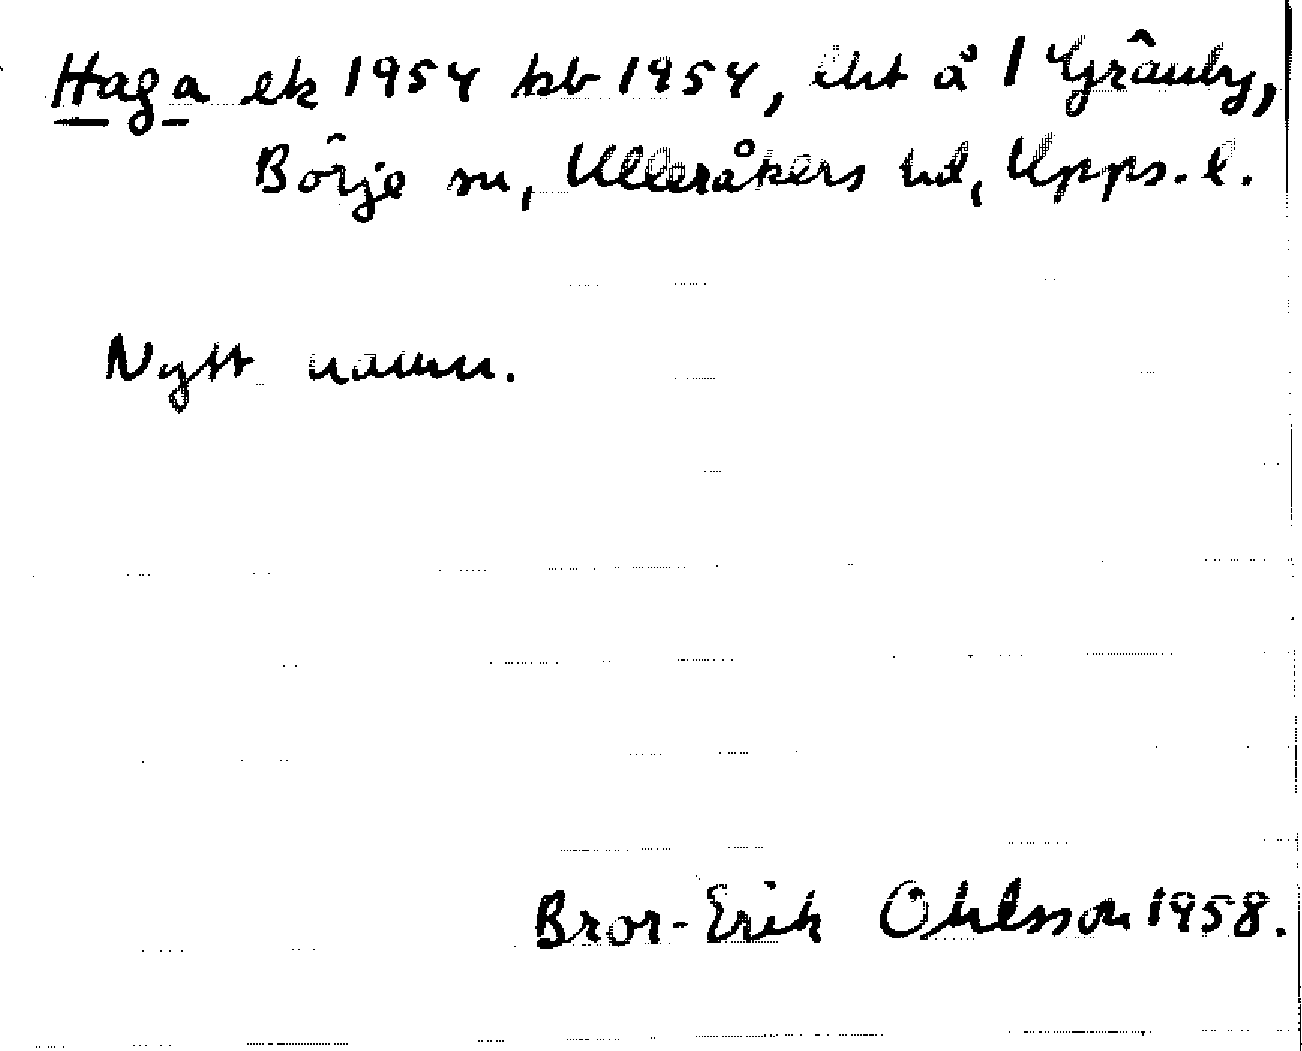 Haga ek 1954 kb 1954, lht å 1 Grânby,
Börje sn, Ulleråkers hd, Upps. l.
Nytt namn.
Bror-Erik Ohlsson 1958.